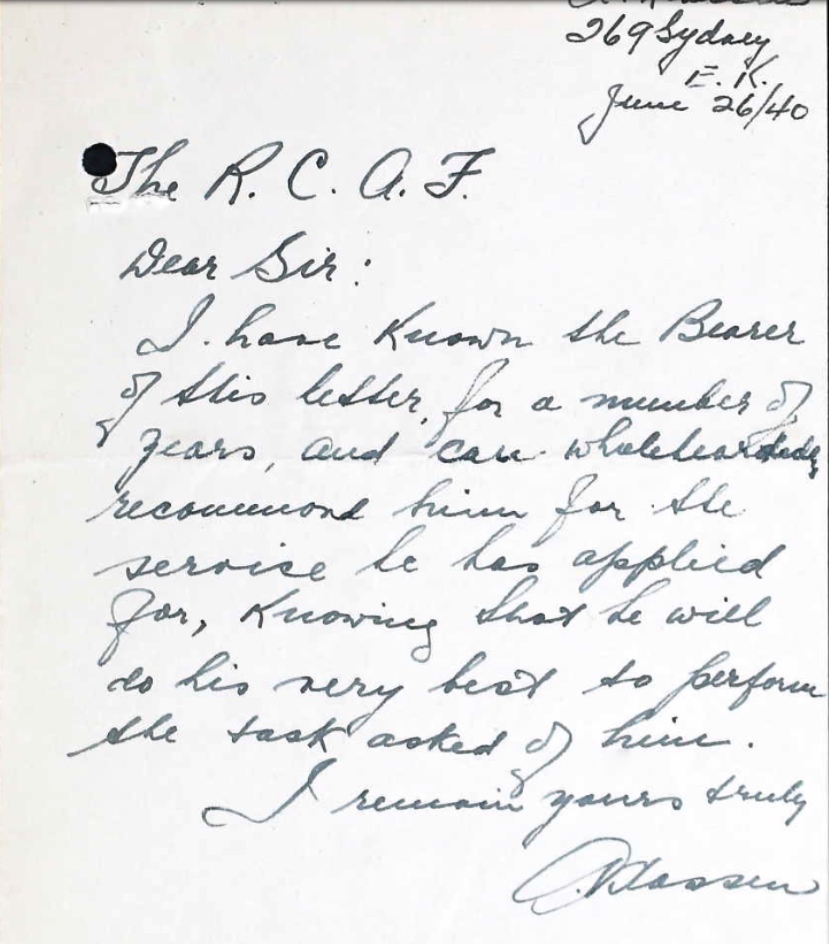 269 Sydney
E. K.
June 26/40
The R. C. A. F.
Dear Sir:
I have Known the Bearer
of this letter, for a number of
years, and can wholeheartedly
recommend him for the
service he has applied
for, Knowing that he will
do his very best to perform
the task asked of him.
I remain yours truly
Klassen